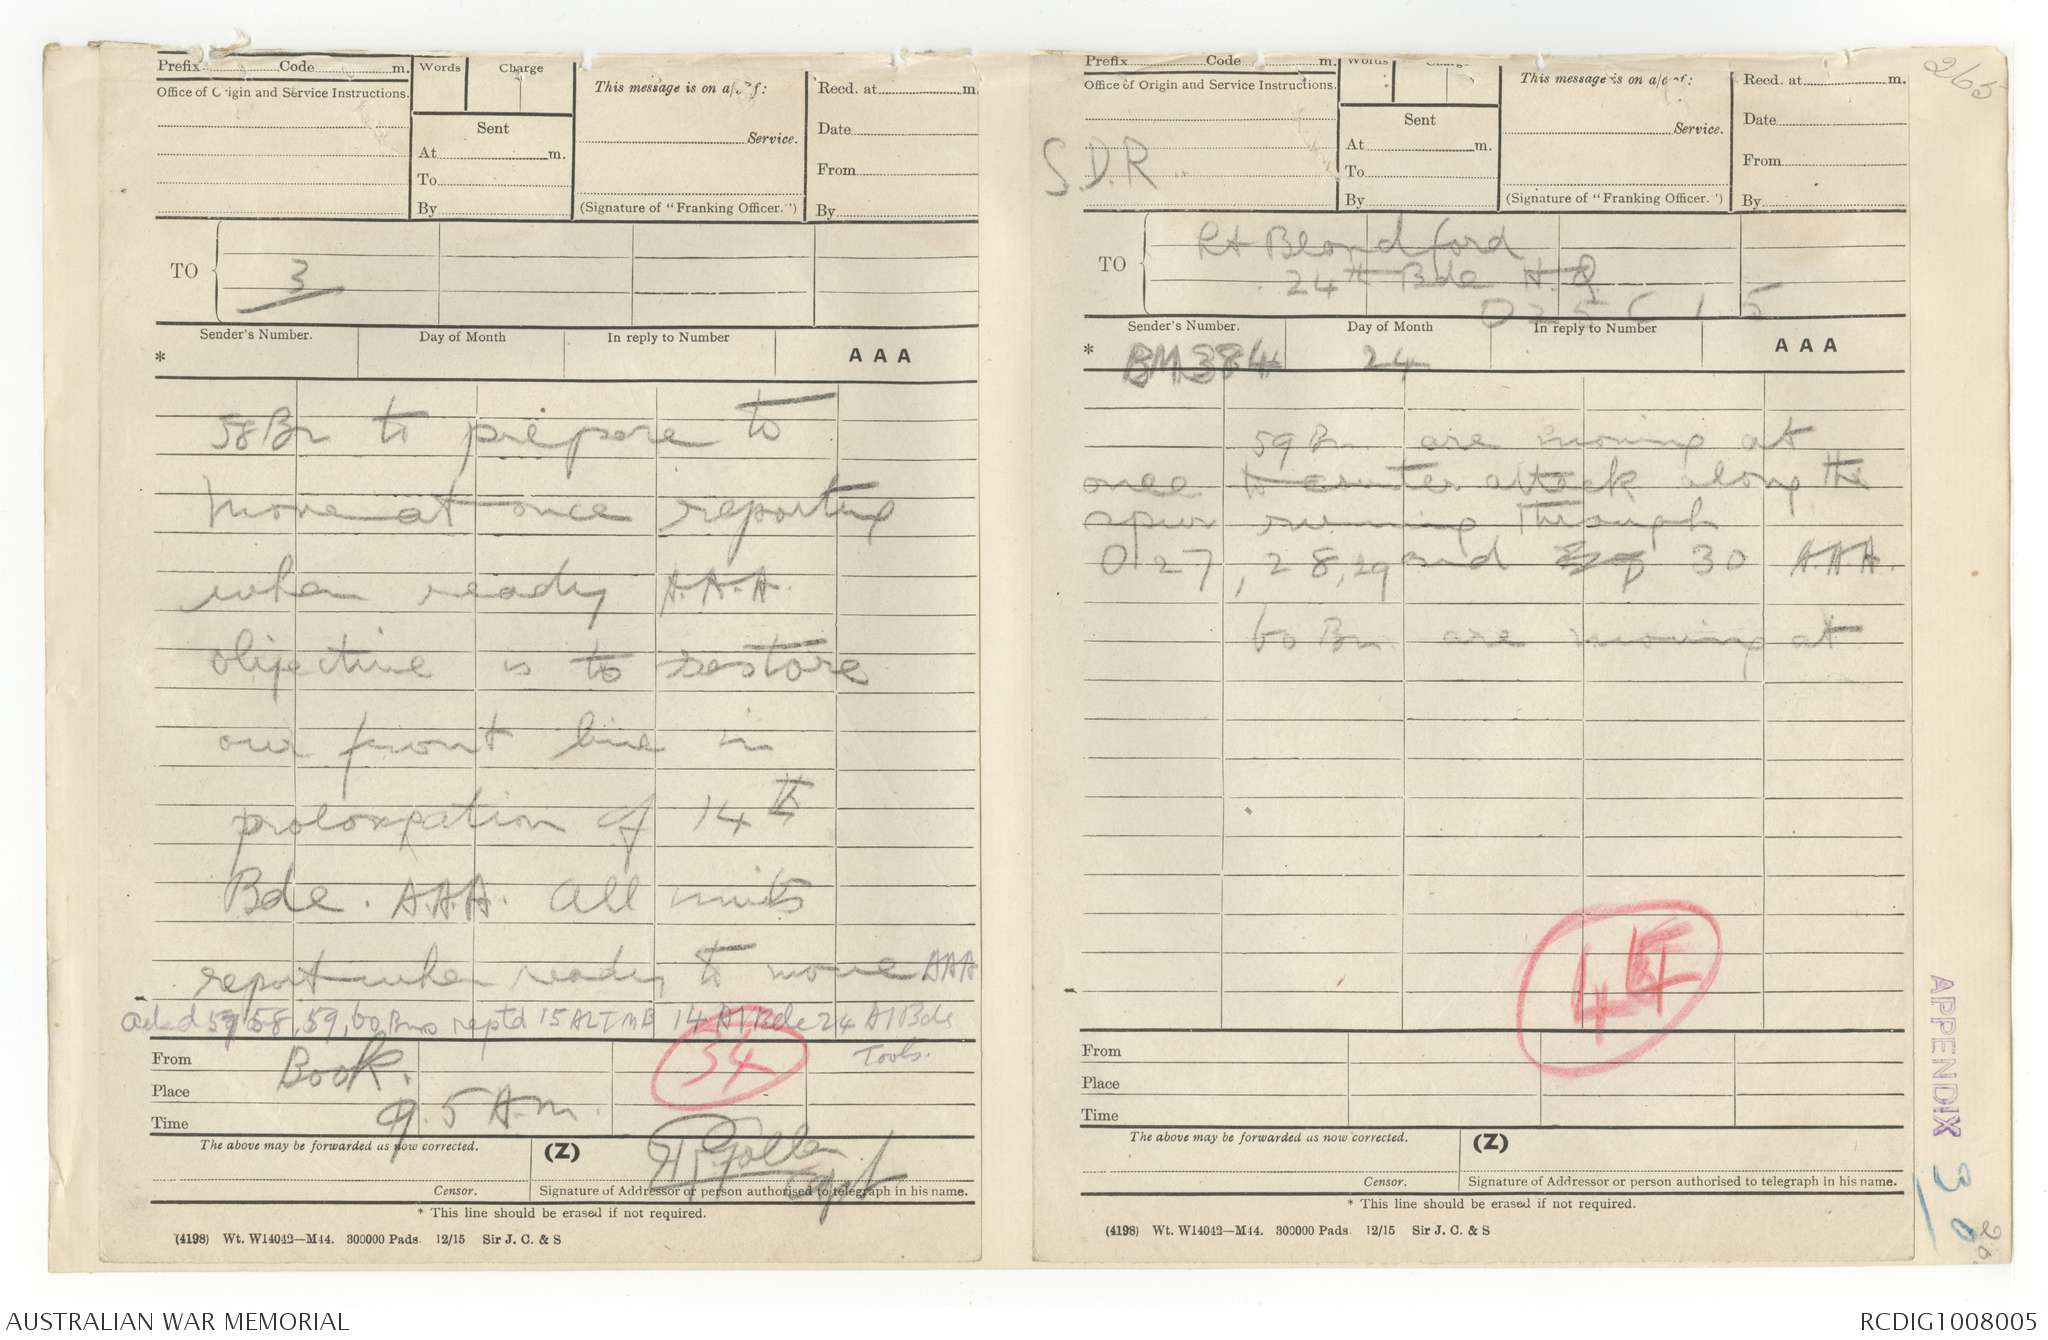 Prefix Code m.
Words Charge
This message is on a/c of:
Recd. at m.
Office of Origin and Service Instructions.
Sent
Service.
Date
At m.
To
From
By
(Signature of "Franking Officer.")
By
TO
3
Sender's Number.
Day of Month
In reply to Number
AAA
*
58 Bn to prepare to
move at once reporting
when ready A.A.A.
objective is to restore
our front line in
prolongation of 14th
Bde. A.A.A. All units
report when ready to move AAA
58, 59, 60 Bns reptd 15 ALTMB 14 AI Bde 24 AI Bde
Tools.
From Book.
Place
Time 9.5 A.m.
54
The above may be forwarded as now corrected.
(Z)
Capt
Censor.
Signature of Addressor or person authorised to telegraph in his name.
* This line should be erased if not required.
(4198) Wt. W14042—M44. 300000 Pads. 12/15 Sir J. C. & S
265
Prefix Code m.
Words
This message is on a/c of:
Recd. at m.
Office of Origin and Service Instructions.
Sent
Service.
Date
S.D.R
At m.
To
From
By
(Signature of "Franking Officer.")
By
TO
Lt Blandford
24th Bde H.Q.
Sender's Number.
Day of Month
In reply to Number
AAA
*
BM384
24
59 Bn are moving at
once to counter attack along the
spur running through
O 27, 28, 29 and 30 A.A.A.
60 Bn. are moving at
From
Place
Time
The above may be forwarded as now corrected.
(Z)
Censor.
Signature of Addressor or person authorised to telegraph in his name.
* This line should be erased if not required.
(4198) Wt. W14042—M44. 300000 Pads. 12/15 Sir J. C. & S
APPENDIX
AUSTRALIAN WAR MEMORIAL
RCDIG1008005